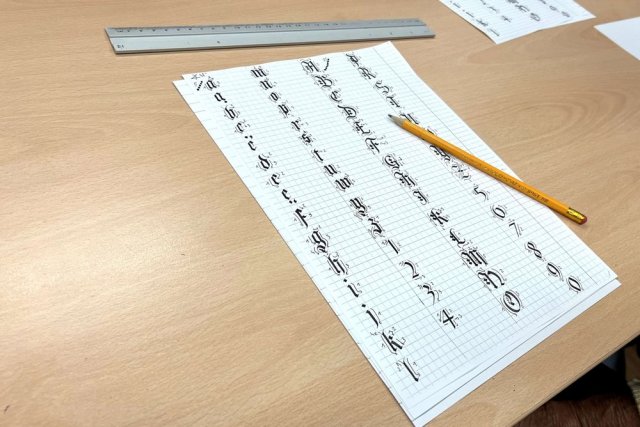 a
a
b
c
c
d
e
e
f
g
h
i
j
k
l
m
n
o
p
r
s
t
u
w
y
z
1
2
3
4
A
B
C
D
E
F
G
H
I
J
K
L
M
N
O
P
R
S
T
5
6
7
8
9
0